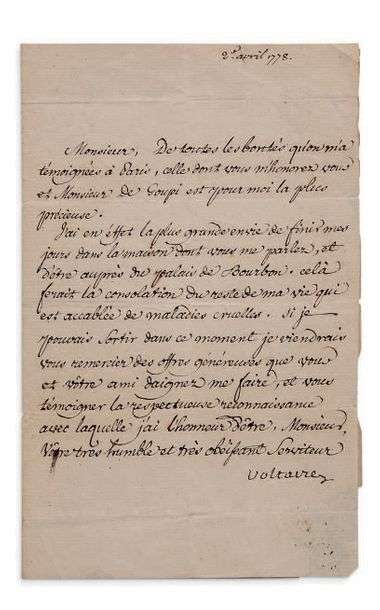 2e. avril 1778.
Monsieur, De toutes les bontés qu'on m'a
témoignées à Paris, celle dont vous m'honorez vous
et Monsieur de Goupi est pour moi la plus
précieuse.
J'ai en effet la plus grande envie de finir mes
jours dans la maison dont vous me parlez, et
d'être auprès du palais de Bourbon. celà
ferait la consolation du reste de ma vie qui
est accablée de maladies cruelles. Si je
pouvais Sortir dans ce moment je viendrais
vous remercier des offres généreuses que vous
et vôtre ami daignez me faire, et vous
témoigner la respectueuse reconnaissance
avec laquelle j'ai l'honneur d'être, Monsieur,
Vôtre très humble et très obéissant Serviteur
Voltaire